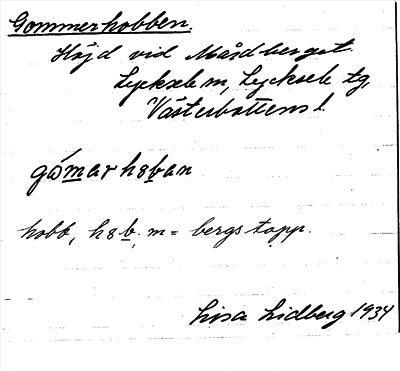 Gommerhobben.
Höjd vid Mårdberget.
Lycksele sn, Lycksele tg,
Västerbottens l.
gómar hɵban
hobb, hɵb, m = bergstopp.
Lisa Lidberg 1934